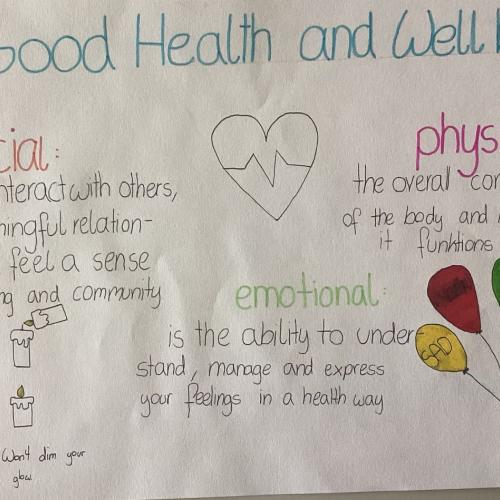 Good Health and Well
cial:
nteract with others,
ningful relation-
feel a sense
ng and community
phys
the overall con
of the body and
it funktions
emotional:
is the ability to under-
stand, manage and express
your feelings in a health way
SAD
Won't dim your
glow